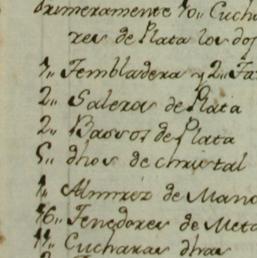 Primeramente 10,, Cucha
res de Plata los dos
1,, Tembladera y 2,, Ta
2,, Saleros de Plata
2,, Basos de Plata
5,, dhos de christal
1,, Almirez de Mano
16,, Tenedores de Meta
11,, Cucharas dhas